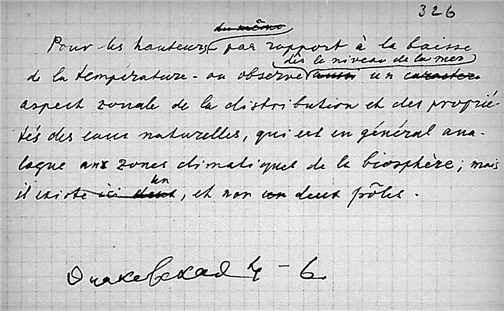 326
du même
Pour les hauteurs, par rapport à la baisse
dès le niveau de la mer
de la température - on observe aussi un caractère
aspect zonale de la distribution et des proprié-
tés des eaux naturelles, qui est en général ana-
logue aux zones climatiques de la biosphère; mais
un
il existe ici deux, et non un deux pôles.
4 - 6